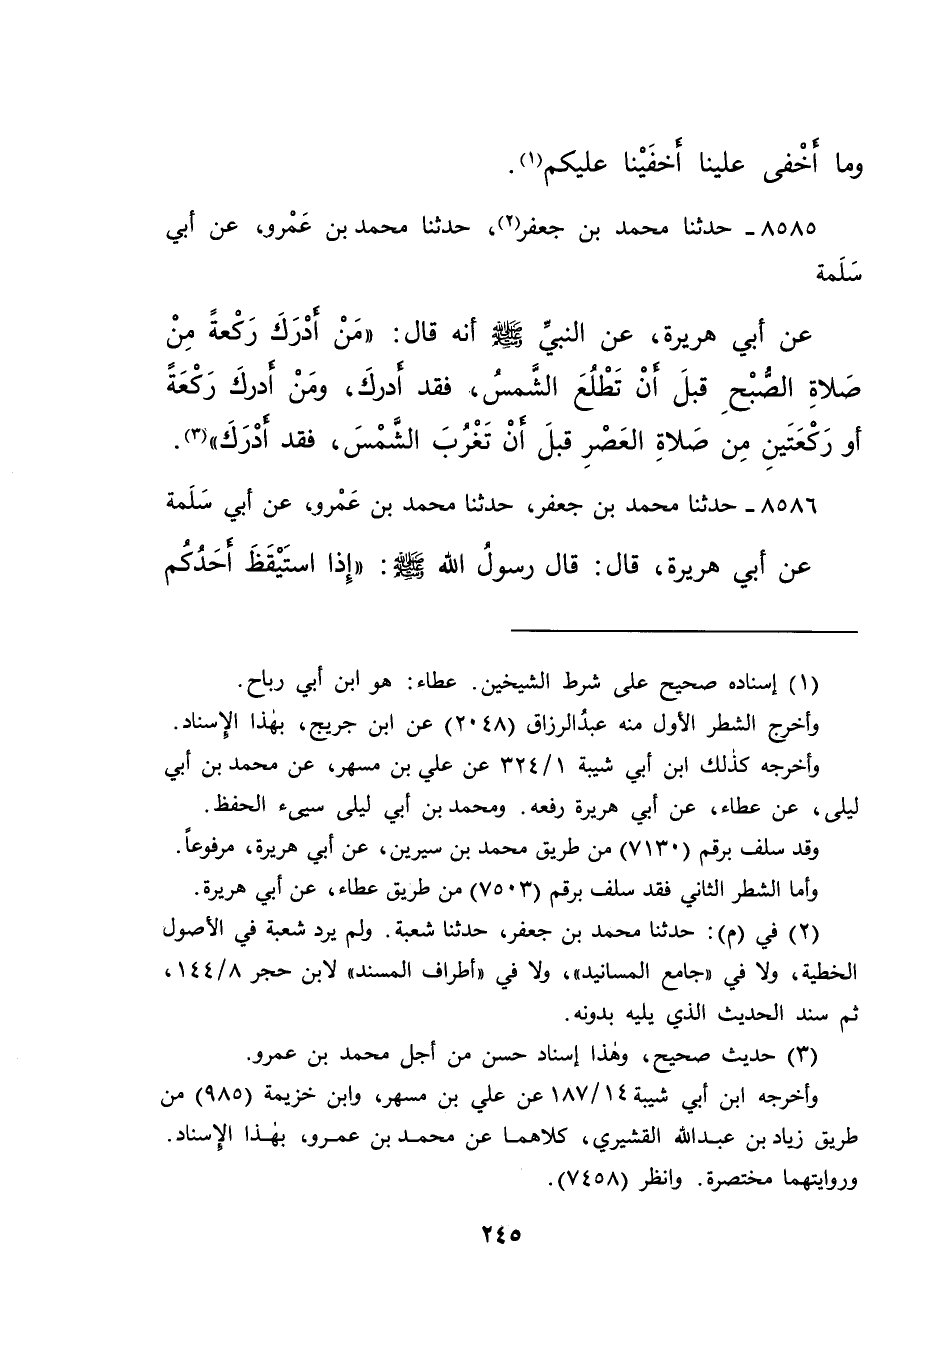 وما أَخْفى علينا أَخفَيْنا عليكم(١).
٨٥٨٥ـ حدثنا محمد بن جعفر(٢)، حدثنا محمد بن عَمْرو، عن أبي
سَلَمة
عن أبي هريرة، عن النبيِّ ﷺ أنه قال: «مَنْ أَدْرَكَ رَكْعةً مِنْ
صَلاةِ الصُّبْحِ قبلَ أَنْ تَطْلُعَ الشَّمسُ، فقد أَدركَ، ومَنْ أَدركَ رَكْعَةً
أو رَكْعَتَينِ مِن صَلاةِ العَصْرِ قبلَ أَنْ تَغْرُبَ الشَّمْسَ، فقد أَدْرَكَ»(٣).
٨٥٨٦ـ حدثنا محمد بن جعفر، حدثنا محمد بن عَمْرو، عن أبي سَلَمة
عن أبي هريرة، قال: قال رسولُ الله ﷺ: «إِذا استَيْقَظَ أَحَدُكُم
(١) إسناده صحيح على شرط الشيخين. عطاء: هو ابن أبي رباح.
وأخرج الشطر الأول منه عبدُالرزاق (٢٠٤٨) عن ابن جريج، بهٰذا الإسناد.
وأخرجه كذٰلك ابن أبي شيبة ٣٢٤/١ عن علي بن مسهر، عن محمد بن أبي
ليلى، عن عطاء، عن أبي هريرة رفعه. ومحمد بن أبي ليلى سيىء الحفظ.
وقد سلف برقم (٧١٣٠) من طريق محمد بن سيرين، عن أبي هريرة، مرفوعاً.
وأما الشطر الثاني فقد سلف برقم (٧٥٠٣) من طريق عطاء، عن أبي هريرة.
(٢) في (م): حدثنا محمد بن جعفر، حدثنا شعبة. ولم يرد شعبة في الأصول
الخطية، ولا في «جامع المسانيد»، ولا في «أطراف المسند» لابن حجر ١٤٤/٨،
ثم سند الحديث الذي يليه بدونه.
(٣) حديث صحيح، وهٰذا إسناد حسن من أجل محمد بن عمرو.
وأخرجه ابن أبي شيبة ١٨٧/١٤ عن علي بن مسهر، وابن خزيمة (٩٨٥) من
طريق زياد بن عبدالله القشيري، كلاهما عن محمد بن عمرو، بهٰذا الإسناد.
وروايتهما مختصرة. وانظر (٧٤٥٨).
٢٤٥